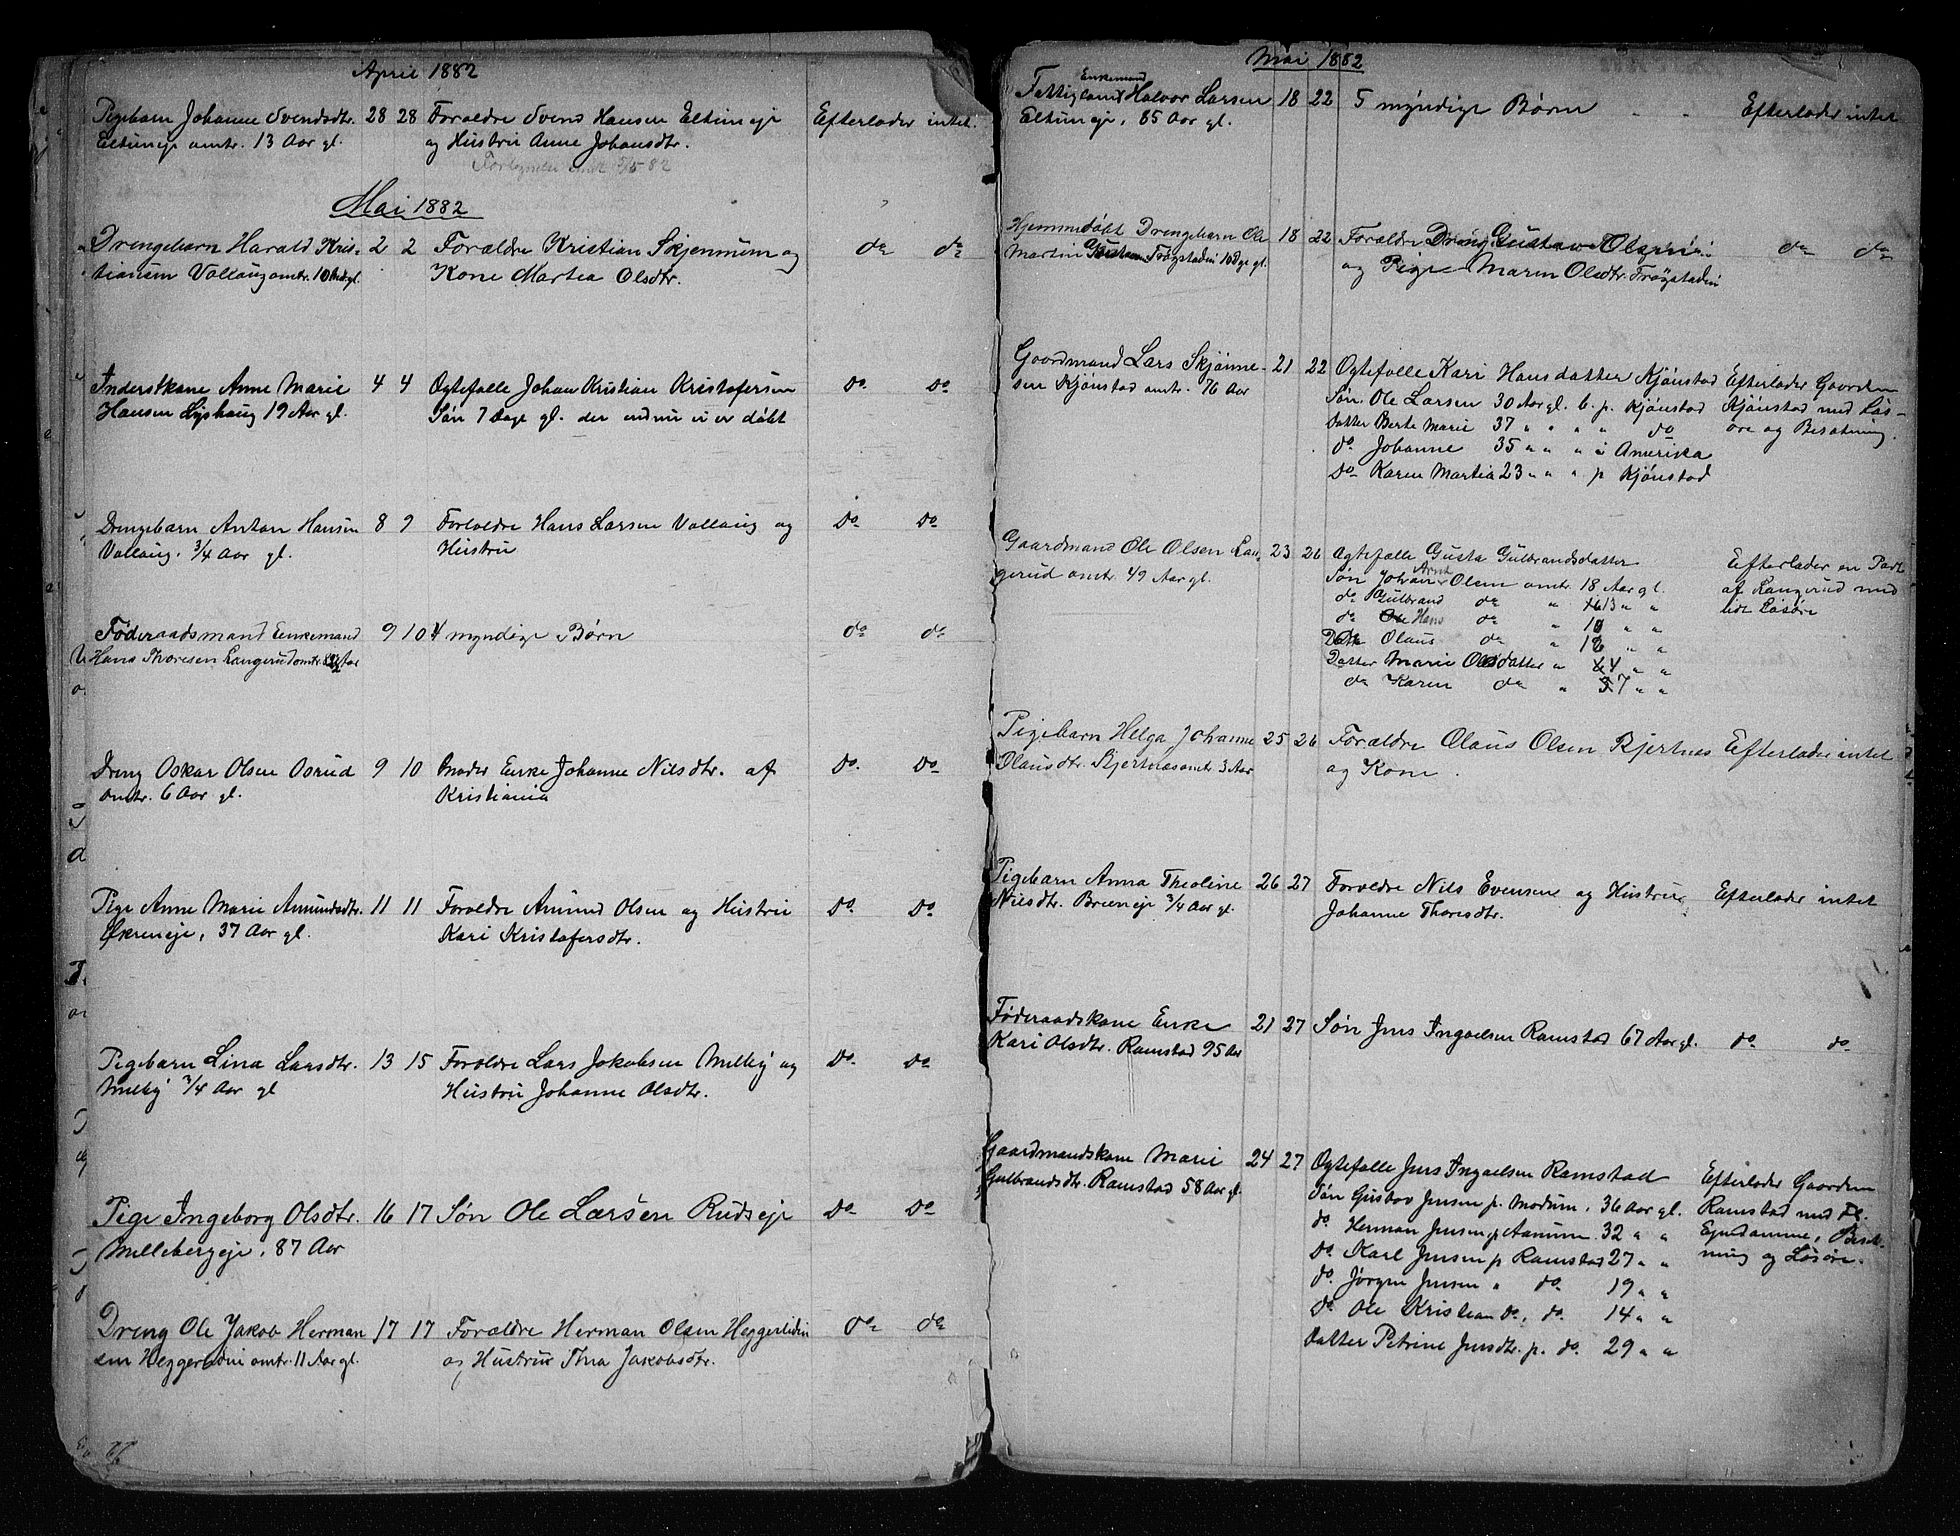 April 1882
Pigebarn Johanne Svendsdtr. 28 28 Forældre Svend Hansen Eltuneje Efterlader intet.
Eltuneje omtr. 13 Aar gl. og Hustru Anne Johansdtr.
82
Mai 1882
Drengebarn Harald Kris- 2 2 Forældre Kristian Skjennum og do do
tiansen Vollaug omtr. 10 gl. Kone Martea Olsdtr.
Inderstkone Anne Marie 4 4 Ogtefalle Johan Kristian Kristofersen do do
Hansen Lyshaug 19 Aar gl. Søn 7 Dage gl. der endnu ei er døbt
Drengebarn Anton Hansen 8 9 Forældre Hans Larsen Vollaug og do do
Vollaug. 3/4 Aar gl. Hustru
Føderaadsmand Enkemand 9 10 4 myndige Børn do do
Hans Thoresen Langerud omtr. Aar
Dreng Oskar Olsen Osrud 9 10 Moder Enke Johanne Nilsdtr. af do. do
omtr. 6 Aar gl. Kristiania
Pige Anne Marie Amundsdtr. 11 11 Forældre Amund Olsen og Hustru do do
Økreneje, 37 Aar gl. Kari Kristofersdtr.
Pigebarn Lina Larsdtr. 13 15 Forældre Lars Jakobsen Melby og do. do
Melby 3/4 Aar gl Hustru Johanne Olsdtr.
Pige Ingeborg Olsdtr. 16 17 Søn Ole Larsen Rudseje do do
Millebergeje, 87 Aar
Dreng Ole Jakob Herman 17 17 Forældre Herman Olsen Heggerlidin do do
sen Heggerlidin omtr. 11 Aar gl. og Hustru Thea Jakobsdtr.
Mai 1882
Enkemand
Fattiglem Halvor Larsen 18 22 5 myndige Børn " " Efterlader intet
Eltuneje, 85 Aar gl.
Hjemmedøbt Drengebarn Ole 18 22 Forældre Dreng Gustav Olsen do do
Martin Gustavsen Trøgstadeie 10 Dge gl. og Pige Maren Olsdtr. Trøgstadeie
Gaardmand Lars Skjønne- 21 22 Ogtefalle Kari Hansdatter Kjønstad Efterlader Gaarden
sen Kjønstad omtr. 76 Aar Søn Ole Larsen 30 Aar gl. b. p. Kjønstad Kjønstad med Løs-
Datter Berte Marie 37 " " " " do øre og Besætning.
do Johanne 35 " " " i Amerika
do Karen Martia 23 " " " p Kjønstad
Gaardmand Ole Olsen Lan- 23 26 Ogtefælle Gusta Gulbrandsdatter Efterlader en Part
gerud omtr. 49 Aar gl. Søn Johan Arnt Olsen omtr. 18 Aar gl. af Langerud med
do Gulbrand do " 13 " " lidt Løsøre
do Hans do " 10 " "
do Olaus do " " "
Datter Marie Olsdatter " 4 " "
do Karen do " 7 " "
Pigebarn Helga Johanne 25 26 Forældre Olaus Olsen Skjertnes Efterlader intet
Olausdtr. Skjertnæs omtr. 3 Aar og Kone.
Pigebarn Anna Theoline 26 27 Forældre Nils Evensen og Hustru Efterlader intet
Nilsdtr. Brieneje 3/4 Aar gl. Johanne Thoresdtr.
Føderaadskone Enke 21 27 Søn Jens Ingvelsen Ramstad 67 Aar gl. do do
Kari Olsdtr. Ramstad 95 Aar
Gaardmandskone Marie 24 27 Ogtefalle Jens Ingvelsen Ramstad Efterlader Gaarden
Gulbrandsdtr. Ramstad 58 Aar gl. Søn Gustav Jensen p. Modum, 36 Aar gl. Ramstad med Fl.
do. Herman Jensen p. Aamum 32 " " Ejendomme, Besæt-
do Karl Jensen p Ramstad 27 " " ning og Løsøre.
do. Jørgen Jensen " do. 19 " "
do. Ole Kristian do, do. 14 " "
Datter Petrine Jensdtr. p. do. 29 " "